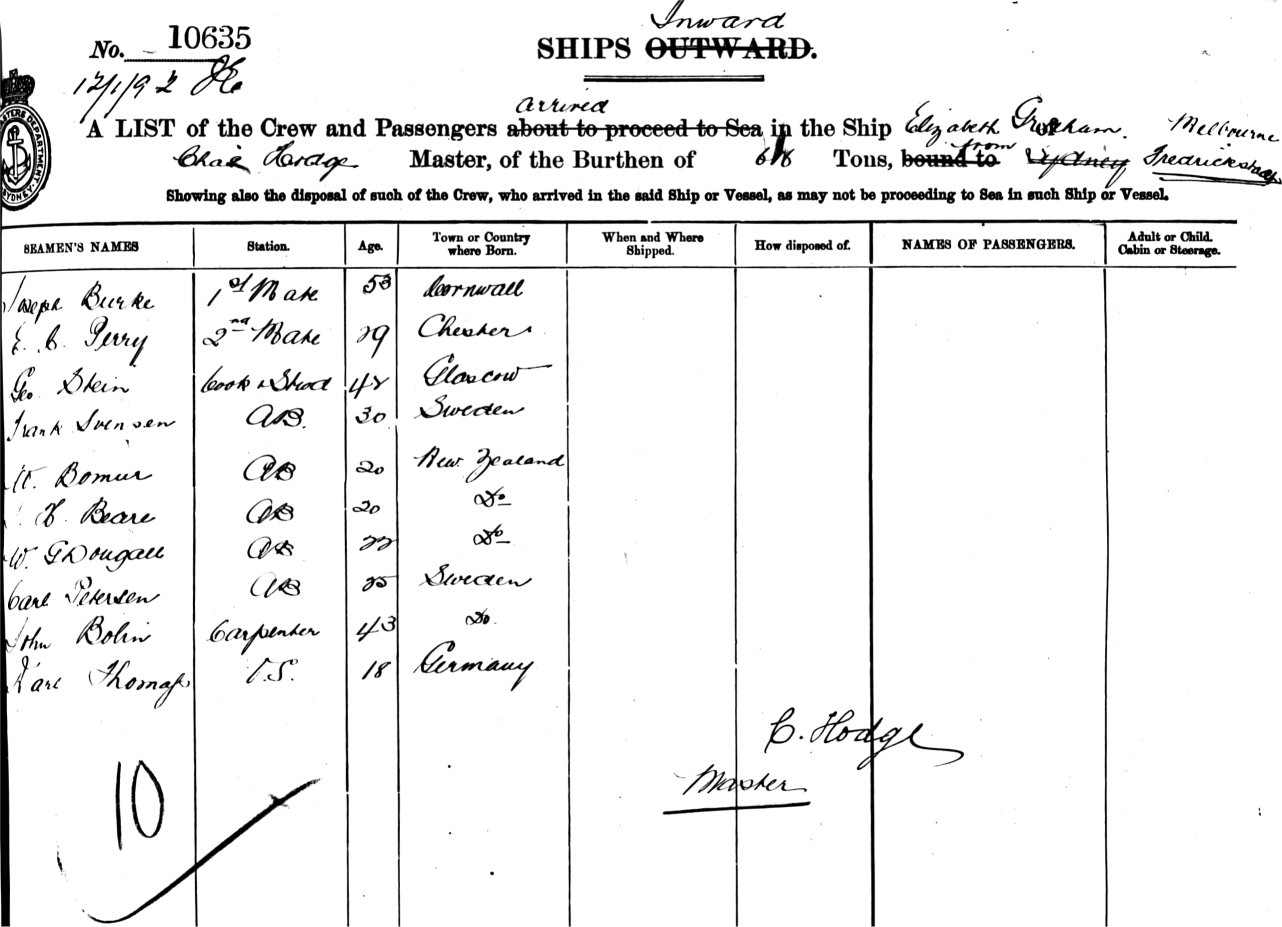 Inward
No. 10635 SHIPS OUTWARD.
12/1/92
arrived
A LIST of the Crew and Passengers about to proceed to Sea in the Ship Elizabeth Graham. Melbourne
from
Hodge Master, of the Burthen of Tons, bound to Sydney Fredrickstadt
Showing also the disposal of such of the Crew, who arrived in the said Ship or Vessel, as may not be proceeding to Sea in such Ship or Vessel.
SEAMEN'S NAMES Station. Age. Town or Country where Born. When and Where Shipped. How disposed of. NAMES OF PASSENGERS. Adult or Child. Cabin or Steerage.
Joseph Burke 1st Mate 53 Cornwall
E. C. Perry 2nd Mate 29 Chester
Geo Stein Cook & Stwd 42 Glascow
Frank Svensen AB. 30 Sweden
Bomur AB 20 New Zealand
Beare AB 20 Do
W. G Dougall AB 22 Do
Carl Petersen AB 25 Sweden
John Bolin Carpenter 43 Do.
Karl Thomas O.S. 18 Germany
C. Hodge
Master
10